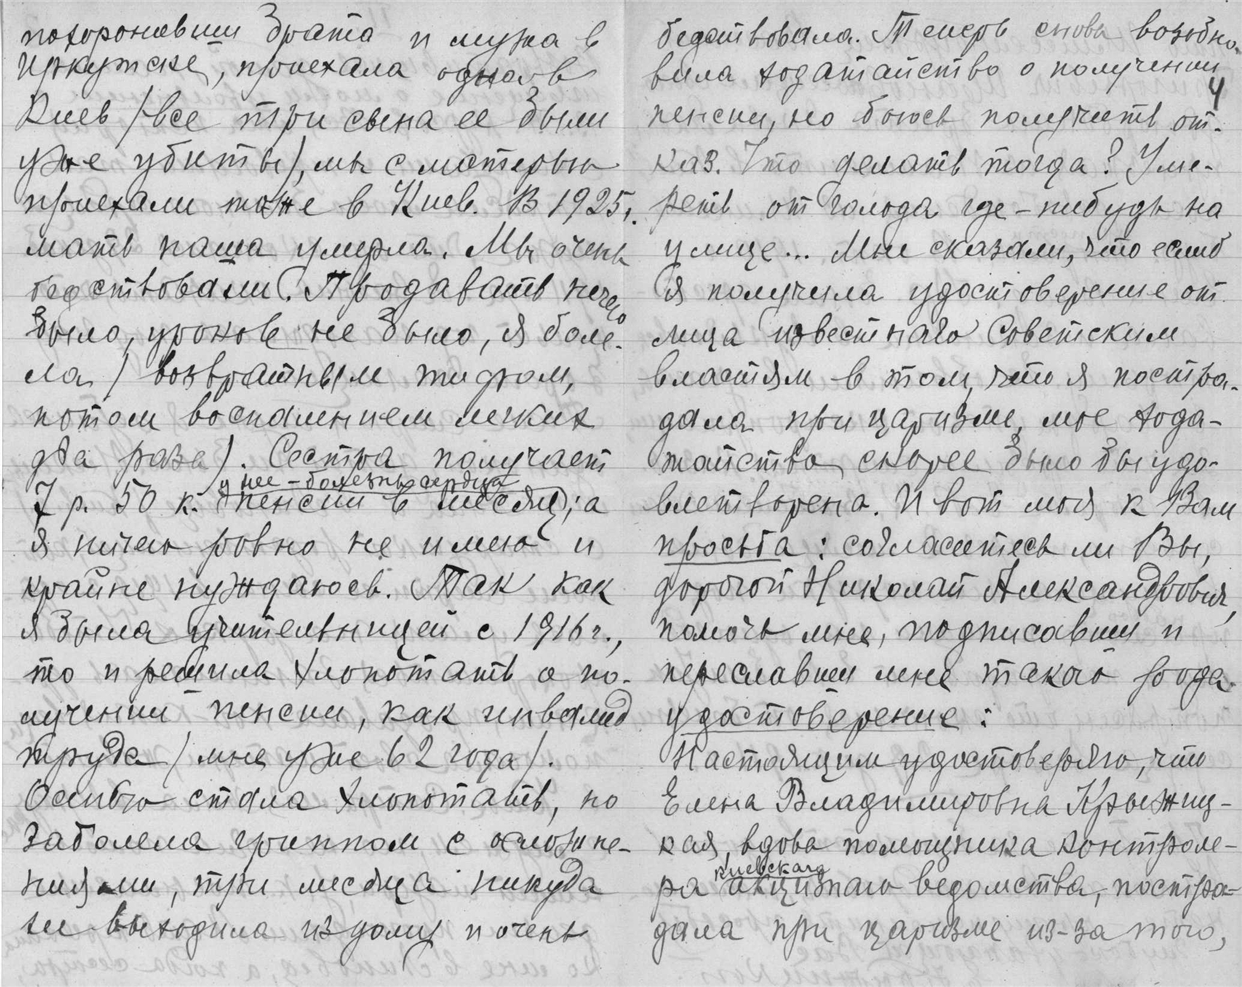 похоронивши брата и мужа в
Иркутске, приехала одна в
Киев /все три сына ее были
уже убиты/, мы с матерью
приехали тоже в Киев. В 1925 г.
мать наша умерла. Мы очень
бедствовали. Продавать нечего
было, уроков не было, я боле-
ла / возвратным тифом,
потом воспалением легких
два раза/. Сестра получает
у нее – болезнь сердца
7 р. 50 к. пенсии в месяц, а
я ничего ровно не имею и
крайне нуждаюсь. Так как
я была учительницей с 1916 г.,
то и решила хлопотать о по-
лучении пенсии, как инвалид
труда / мне уже 62 года/.
Осенью стала хлопотать, но
заболела гриппом с осложне-
ниями, три месяца никуда
не выходила из дому и очень
бедствовала. Теперь снова возобно-
вила ходатайство о получении
4
пенсии, но боюсь получить от-
каз. Что делать тогда? Уме-
реть от голода где-нибудь на
улице... Мне сказали, что если б
я получила удостоверение от
лица известного Советским
властям в том, что я постра-
дала при царизме, мое хода-
тайство скорее было бы удо-
влетворено. И вот моя к Вам
просьба: согласитесь ли Вы,
дорогой Николай Александрович,
помочь мне, подписавши и
переславши мне такого рода
удостоверение:
Настоящим удостоверяю, что
Елена Владимировна Крыжиц-
кая, вдова помощника контроле-
киевского
ра акцизного ведомства, постра-
дала при царизме из-за того,